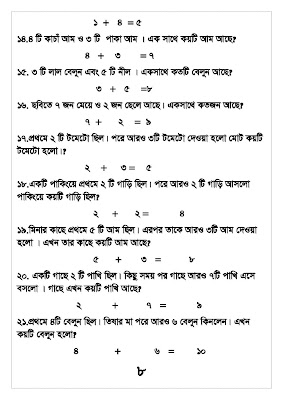 ১ + ৪ = ৫
১৪.৪ টি কাচাঁ আম ও ৩ টি পাকা আম । এক সাথে কয়টি আম আছে?
৪ + ৩ = ৭
১৫. ৩ টি লাল বেলুন এবং ৫ টি নীল । একসাথে কতটি বেলুন আছে?
৩ + ৫ =৮
১৬. ছবিতে ৭ জন মেয়ে ও ২ জন ছেলে আছে। একসাথে কতজন আছে?
৭ + ২ = ৯
১৭.প্রথমে ২ টি টমেটো ছিল। পরে আরও ৩টি টমেটো দেওয়া হলো মোট কয়টি
টমেটো হলো।?
২ + ৩ = ৫
১৮.একটি পার্কিংয়ে প্রথমে ২ টি গাড়ি ছিল। পরে আরও ২ টি গাড়ি আসলো
পার্কিংয়ে কয়টি গাড়ি ছিল?
২ + ২ = ৪
১৯.মিনার কাছে প্রথমে ৫ টি আম ছিল। এরপর তাকে আরও ৩টি আম দেওয়া
হলো । এখন তার কাছে কয়টি আম আছে?
৫ + ৩ = ৮
২০. একটি গাছে ২ টি পাখি ছিল। কিছু সময় পর গাছে আরও ৭টি পাখি এসে
বসলো । গাছে এখন কয়টি পাখি আছে?
২ + ৭ = ৯
২১.প্রথমে ৪টি বেলুন ছিল। তিষার মা পরে আরও ৬ বেলুন কিনলেন। এখন
কয়টি বেলুন হলো?
৪ + ৬ = ১০
৮